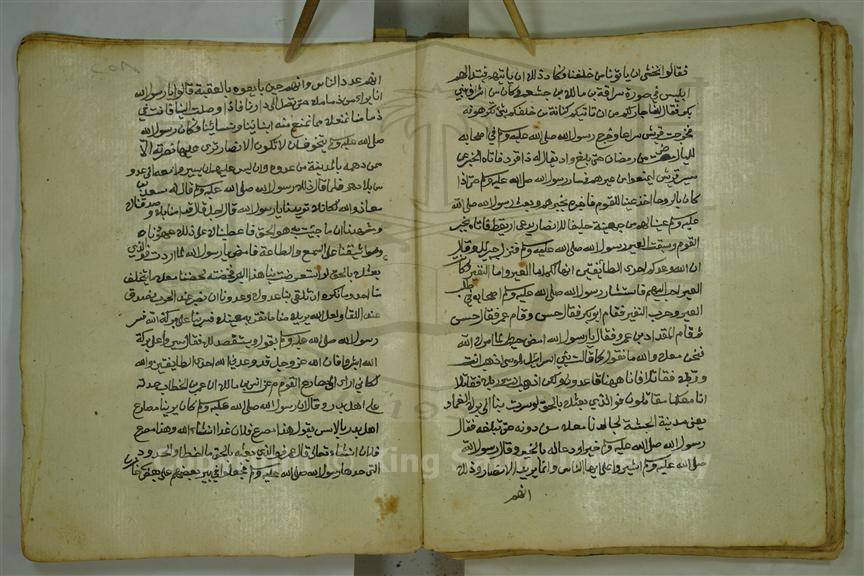 فقالوا نخشى ان ياتونا من خلفنا وكاد ذلك ان يثنيهم فتبدا لهم
ابليس في صورة سراقة بن مالك بن جشعم وكان من اشراف بني
بكر فقال انا جار لكم من ان تاتيكم كنانة من خلفكم بشي تكرهونه
فخرجت قريش سراعا وخرج رسول الله صلى الله عليه وسلم في اصحابه
لليال مضت من رمضان حتى بلغ واديا يقال له ذا قرد فاتاه الخبر عن
مسير قريش ليمنعوا عن عيرهم فسار رسول الله صلى الله عليه وسلم حتى اذا
كان بالروحا اخذ عينا للقوم فاخبره بخبرهم وبعث رسول الله صلى الله
عليه وسلم عينا له من جهينة حليفا للانصار يدعى اريقط فاتاه بخبر
القوم وسبقت العير رسول الله صلى الله عليه وسلم فنزل جبريل وقال
ان الله وعدكم احدى الطائفتين انها لكم اما العير واما النفير وكانت
العير احب اليهم فاستشار رسول الله صلى الله عليه وسلم اصحابه في طلب
العير وحرب النفير فقام ابو بكر فقال احسن وقام عمر فقال احسن
ثم قام المقداد بن عمرو فقال يا رسول الله امض حيث امرك الله
فنحن معك والله ما نقول كما قالت بني اسرائيل لموسى اذهب انت
وربك فقاتلا انا هاهنا قاعدون ولكن اذهب انت وربك فقاتلا
انا معكما مقاتلون فوالذي بعثك بالحق لو سرت بنا الى برك الغماد
يعني مدينة الحبشة لجالدنا معك من دونه حتى تبلغه فقال
رسول الله صلى الله عليه وسلم خيرا ودعا له بالخير وقال رسول الله
صلى الله عليه وسلم اشيروا علي ايها الناس وانما يريد الانصار وذلك
انهم
انهم عدد الناس وانهم حين بايعوه بالعقبة قالوا يا رسول الله
انا براء من ذمامك حتى تصل الى دارنا فاذا وصلت الينا فانت في
ذمامنا نمنعك مما نمنع منه ابناءنا ونساءنا فكان رسول الله
صلى الله عليه وسلم يتخوف ان لا تكون الانصار ترى عليها نصرته الا
ممن دهمه بالمدينة من عدوه وان ليس عليهم ان يسير بهم الى عدو
من بلادهم فلما قال ذلك رسول الله صلى الله عليه وسلم قال له سعد بن
معاذ والله لكانك تريدنا يا رسول الله قال اجل قال قد امنا بك وصدقناك
وشهدنا ان ما جيت به هو الحق فاعطيناك على ذلك عهودنا
ومواثيقنا على السمع والطاعة فامض يا رسول الله لما اردت فوالذي
بعثك بالحق لو استعرضت بنا هذا البحر فخضته لخضناه معك ما يتخلف
منا احد وما نكره ان تلقى بنا عدوك وعدونا انا لصبر عند الحرب صدق
عند اللقاء ولعل الله يريك منا ما تقر به عينك فسر بنا على بركة الله فسر
رسول الله صلى الله عليه وسلم بقول سعد فقال سيروا على بركة
الله وابشروا فان الله عز وجل قد وعدني الله احدى الطايفتين والله
لكاني ارى الى مصارع القوم عن انس بن مالك ان عمر بن الخطاب حدثه
على اهل بدر وقال ان رسول الله صلى الله عليه وسلم كان يرينا مصارع
اهل بدر بالامس يقول هذا مصرع فلان غدا ان شاء الله وهذا مصرع
فلان ان شاء الله تعالى قال عمر فوالذي بعثه بالحق ما اخطوا الحدود
التي حدها رسول الله صلى الله عليه وسلم فجعلوا في بير بعضهم على بعض
King S